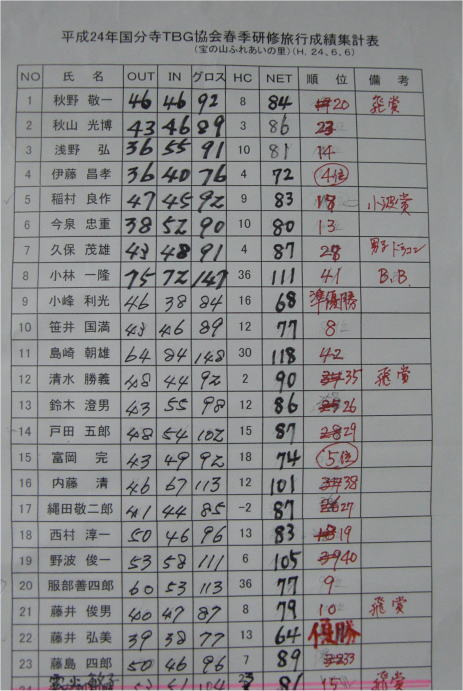 平成24年国分寺TBG協会春季研修旅行成績集計表
(宝の山ふれあいの里)(H.24,6,6)
NO 氏名 OUT IN グロス HC NET 順位 備考
1 秋野 敬一 46 46 92 8 84 20 飛賞
2 秋山 光博 43 46 89 3 86 23
3 浅野 弘 36 55 91 10 81 14
4 伊藤 昌孝 36 40 76 4 72 4位
5 稲村 良作 47 45 92 9 83 18 小波賞
6 今泉 忠重 38 52 90 10 80 13
7 久保 茂雄 43 48 91 4 87 28 男子ドラコン
8 小林 一隆 75 72 147 36 111 41 B.B.
9 小峰 利光 46 38 84 16 68 準優勝
10 笹井 国満 43 46 89 12 77 8
11 島崎 朝雄 64 84 148 30 118 42
12 清水 勝義 48 44 92 2 90 35 飛賞
13 鈴木 澄男 43 55 98 12 86 26
14 戸田 五郎 48 54 102 15 87 29
15 富岡 完 43 49 92 18 74 5位
16 内藤 清 46 67 113 12 101 38
17 縄田敬二郎 41 44 85 -2 87 27
18 西村 淳一 50 46 96 13 83 19
19 野波 俊一 53 58 111 6 105 40
20 服部善四郎 60 53 113 36 77 9
21 藤井 俊男 40 47 87 8 79 10 飛賞
22 藤井 弘美 39 38 77 13 64 優勝
23 藤島 四郎 50 46 96 7 89 33
24 104 81 15 飛賞